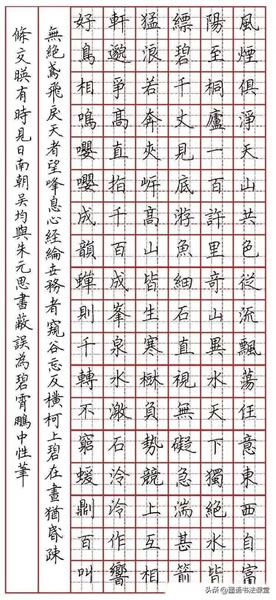 風煙俱淨天山共色從流飄蕩任意東西自富
陽至桐廬一百許里奇山異水天下獨絕水皆
縹碧千丈見底游魚細石直視無礙急湍甚箭
猛浪若奔夾岸高山皆生寒樹負勢競上互相
軒邈爭高直指千百成峯泉水激石泠泠作響
好鳥相鳴嚶嚶成韻蟬則千轉不窮蝯則百叫
無絕鳶飛戾天者望峰息心經綸世務者窺谷忘反橫柯上碧在晝猶昏疎
條交暎有時見日南朝吳均與朱元思書蔽誤為碧霄鵬中性筆